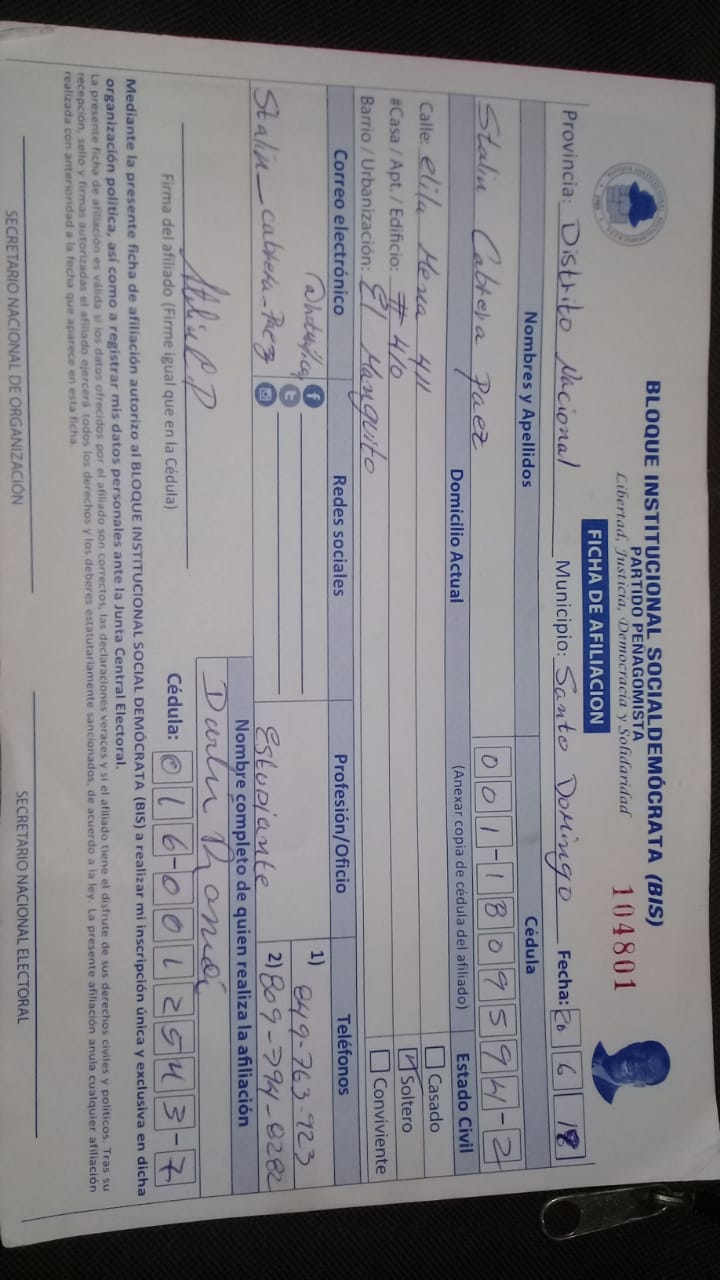 BLOQUE INSTITUCIONAL SOCIALDEMÓCRATA (BIS)
PARTIDO PEÑAGOMISTA
Libertad, Justicia, Democracia y Solidaridad
104801
FICHA DE AFILIACION
Provincia: Distrito Nacional Municipio: Santo Domingo Fecha: 26 6 18
Nombres y Apellidos Cédula
Stalin Cabrera Paez 001-1809594-2
Domicilio Actual (Anexar copia de cédula del afiliado) Estado Civil
Calle: 411 Casado
#Casa / Apt. / Edificio: # 410 Soltero
Barrio / Urbanización: El Manguito Conviviente
Correo electrónico Redes sociales Profesión/Oficio Teléfonos
1) 849-763-923
Stalin_cabrera_Paez Estudiante 2) 809-794-8282
Nombre completo de quien realiza la afiliación
Firma del afiliado (Firme igual que en la Cédula) Cédula: 016-0012543-7
Mediante la presente ficha de afiliación autorizo al BLOQUE INSTITUCIONAL SOCIAL DEMÓCRATA (BIS) a realizar mi inscripción única y exclusiva en dicha
organización política, así como a registrar mis datos personales ante la Junta Central Electoral.
La presente ficha de afiliación es válida si los datos ofrecidos por el afiliado son correctos, las declaraciones veraces y si el afiliado tiene el disfrute de sus derechos civiles y políticos. Tras su
recepción, sello y firmas autorizadas el afiliado ejercerá todos los derechos y los deberes estatutariamente sancionados, de acuerdo a la ley. La presente afiliación anula cualquier afiliación
realizada con anterioridad a la fecha que aparece en esta ficha.
SECRETARIO NACIONAL DE ORGANIZACIÓN SECRETARIO NACIONAL ELECTORAL